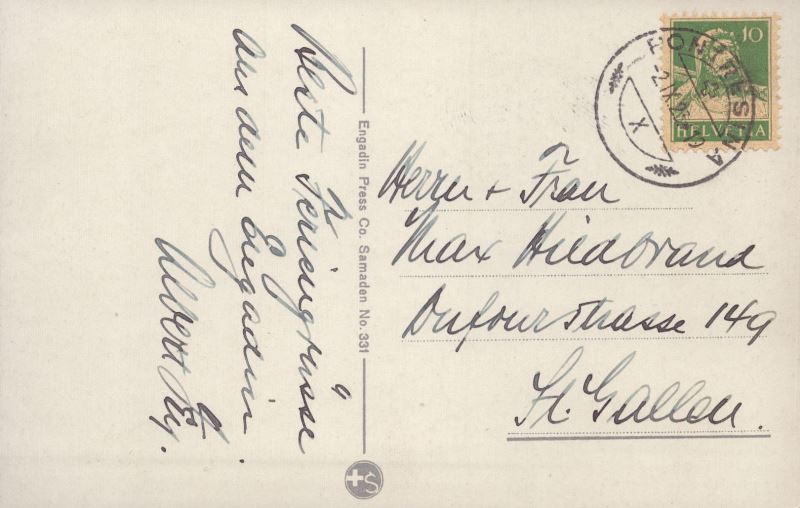 Beste Feriengrüsse
aus dem Engadin
Albert
Engadin Press Co. Samaden No. 331
10
HELVETIA
PONTRESINA
Herrn + Frau
Max Hildbrand
Dufourstrasse 149
St. Gallen.